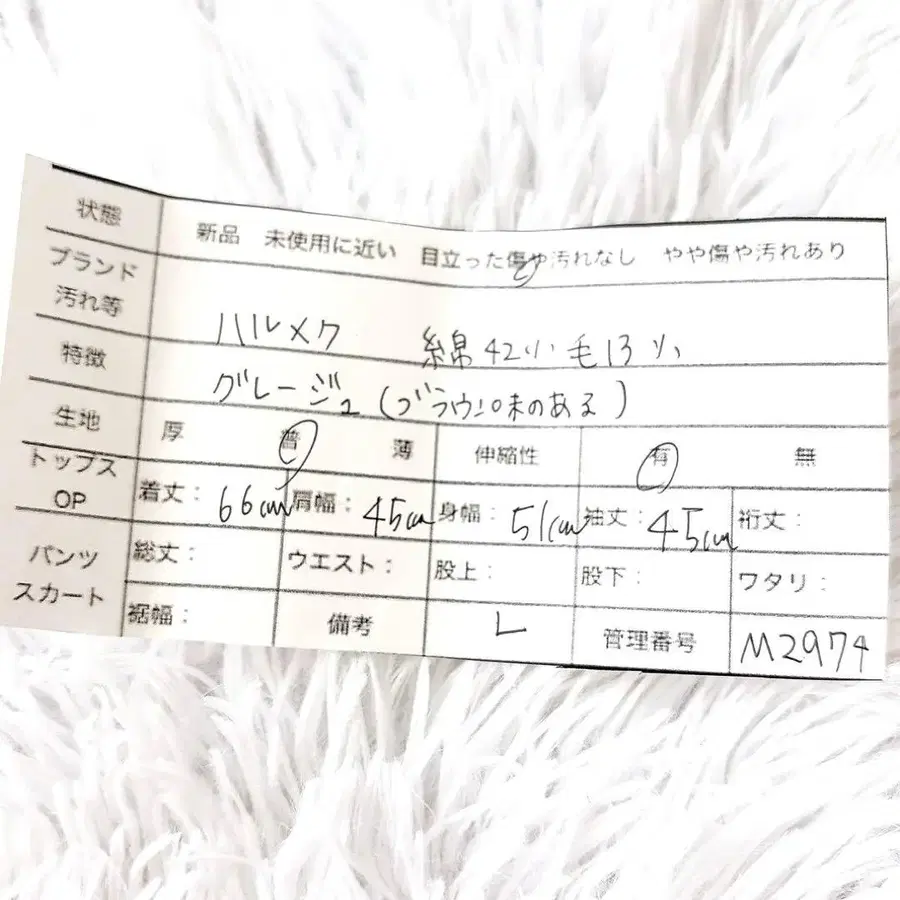 状態 新品 未使用に近い 目立った傷や汚れなし やや傷や汚れあり
ブランド
汚れ等 ハルメク 綿42% 毛13%
特徴 グレージュ(ブラウン味のある)
生地 厚 普 薄 伸縮性 有 無
トップス
OP 着丈: 66cm 肩幅: 45cm 身幅: 51cm 袖丈: 45cm 裄丈:
パンツ
スカート 総丈: ウエスト: 股上: 股下: ワタリ:
裾幅: 備考 L 管理番号 M2974